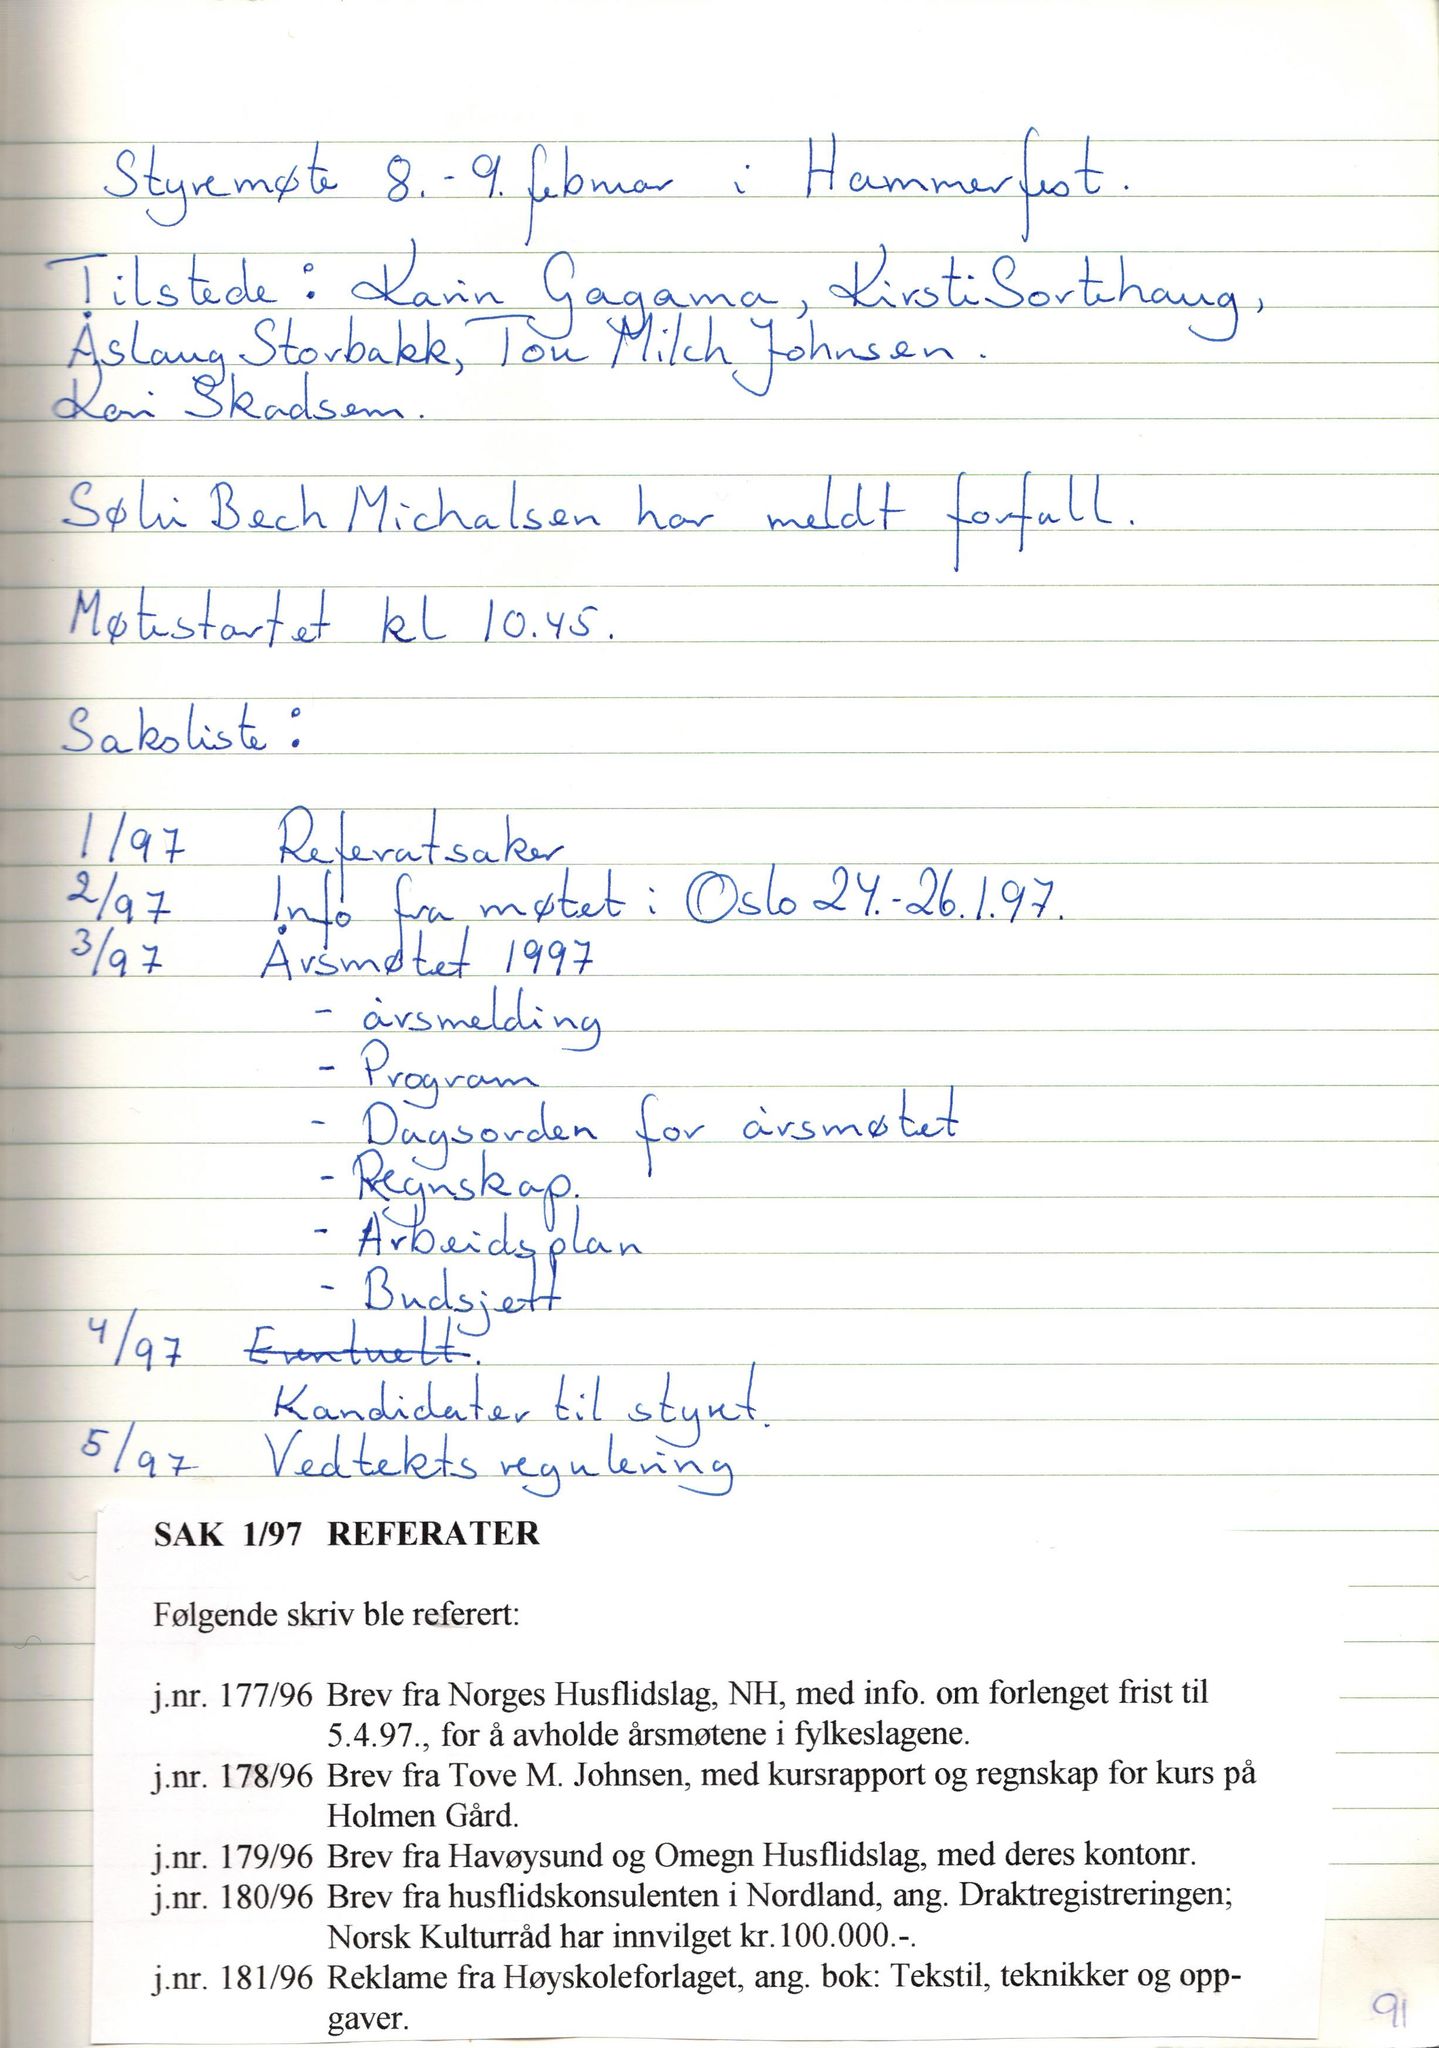 Styremøte 8.-9. februar i Hammerfest.
Tilstede: Karin Gagama, Kirsti Sortehaug,
Åslaug Storbakk, Tove Milch Johnsen.
Kari Skadsem.
Sølvi Bech Michalsen har meldt forfall.
Møtestartet kl 10.45.
Saksliste:
1/97 Referatsaker
2/97 Info fra møtet i Oslo 24.-26.1.97.
3/97 Årsmøtet 1997
- årsmelding
- Program
- Dagsorden for årsmøtet
- Regnskap.
- Arbeidsplan
- Budsjett
4/97 Eventuelt.
Kandidater til styret.
5/97 Vedtektsregulering
SAK 1/97 REFERATER
Følgende skriv ble referert:
j.nr. 177/96 Brev fra Norges Husflidslag, NH, med info. om forlenget frist til
5.4.97., for å avholde årsmøtene i fylkeslagene.
j.nr. 178/96 Brev fra Tove M. Johnsen, med kursrapport og regnskap for kurs på
Holmen Gård.
j.nr. 179/96 Brev fra Havøysund og Omegn Husflidslag, med deres kontonr.
j.nr. 180/96 Brev fra husflidskonsulenten i Nordland, ang. Draktregistreringen;
Norsk Kulturråd har innvilget kr.100.000.-.
j.nr. 181/96 Reklame fra Høyskoleforlaget, ang. bok: Tekstil, teknikker og opp-
gaver.
91